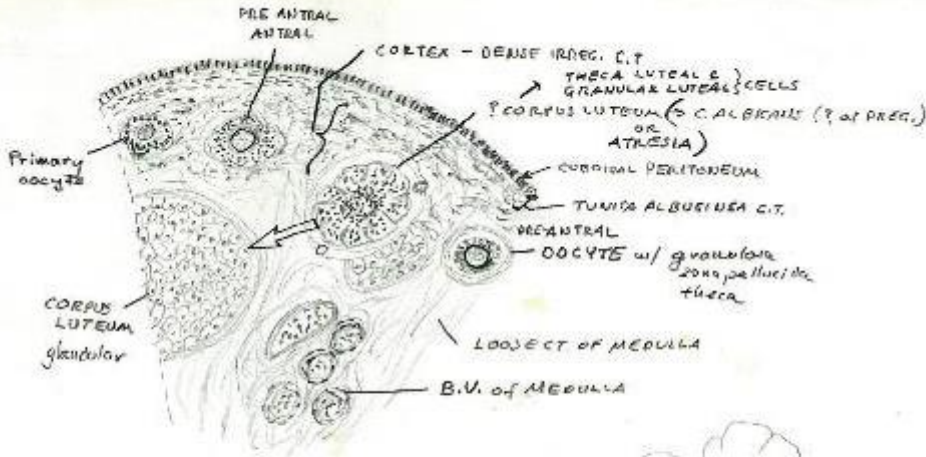 PRE ANTRAL
ANTRAL
CORTEX - DENSE IRREG. C.T
THECA LUTEAL &
GRANULAR LUTEAL } CELLS
? CORPUS LUTEUM ( → C. ALBICANS (? of PREG.)
OR
ATRESIA )
Primary
oocyte
CUBOIDAL PERITONEUM
TUNICA ALBUGINEA C.T.
PREANTRAL
OOCYTE w/ granulosa
zona pellucida
theca
CORPUS
LUTEUM
glandular
LOOSE CT OF MEDULLA
B.V. of MEDULLA